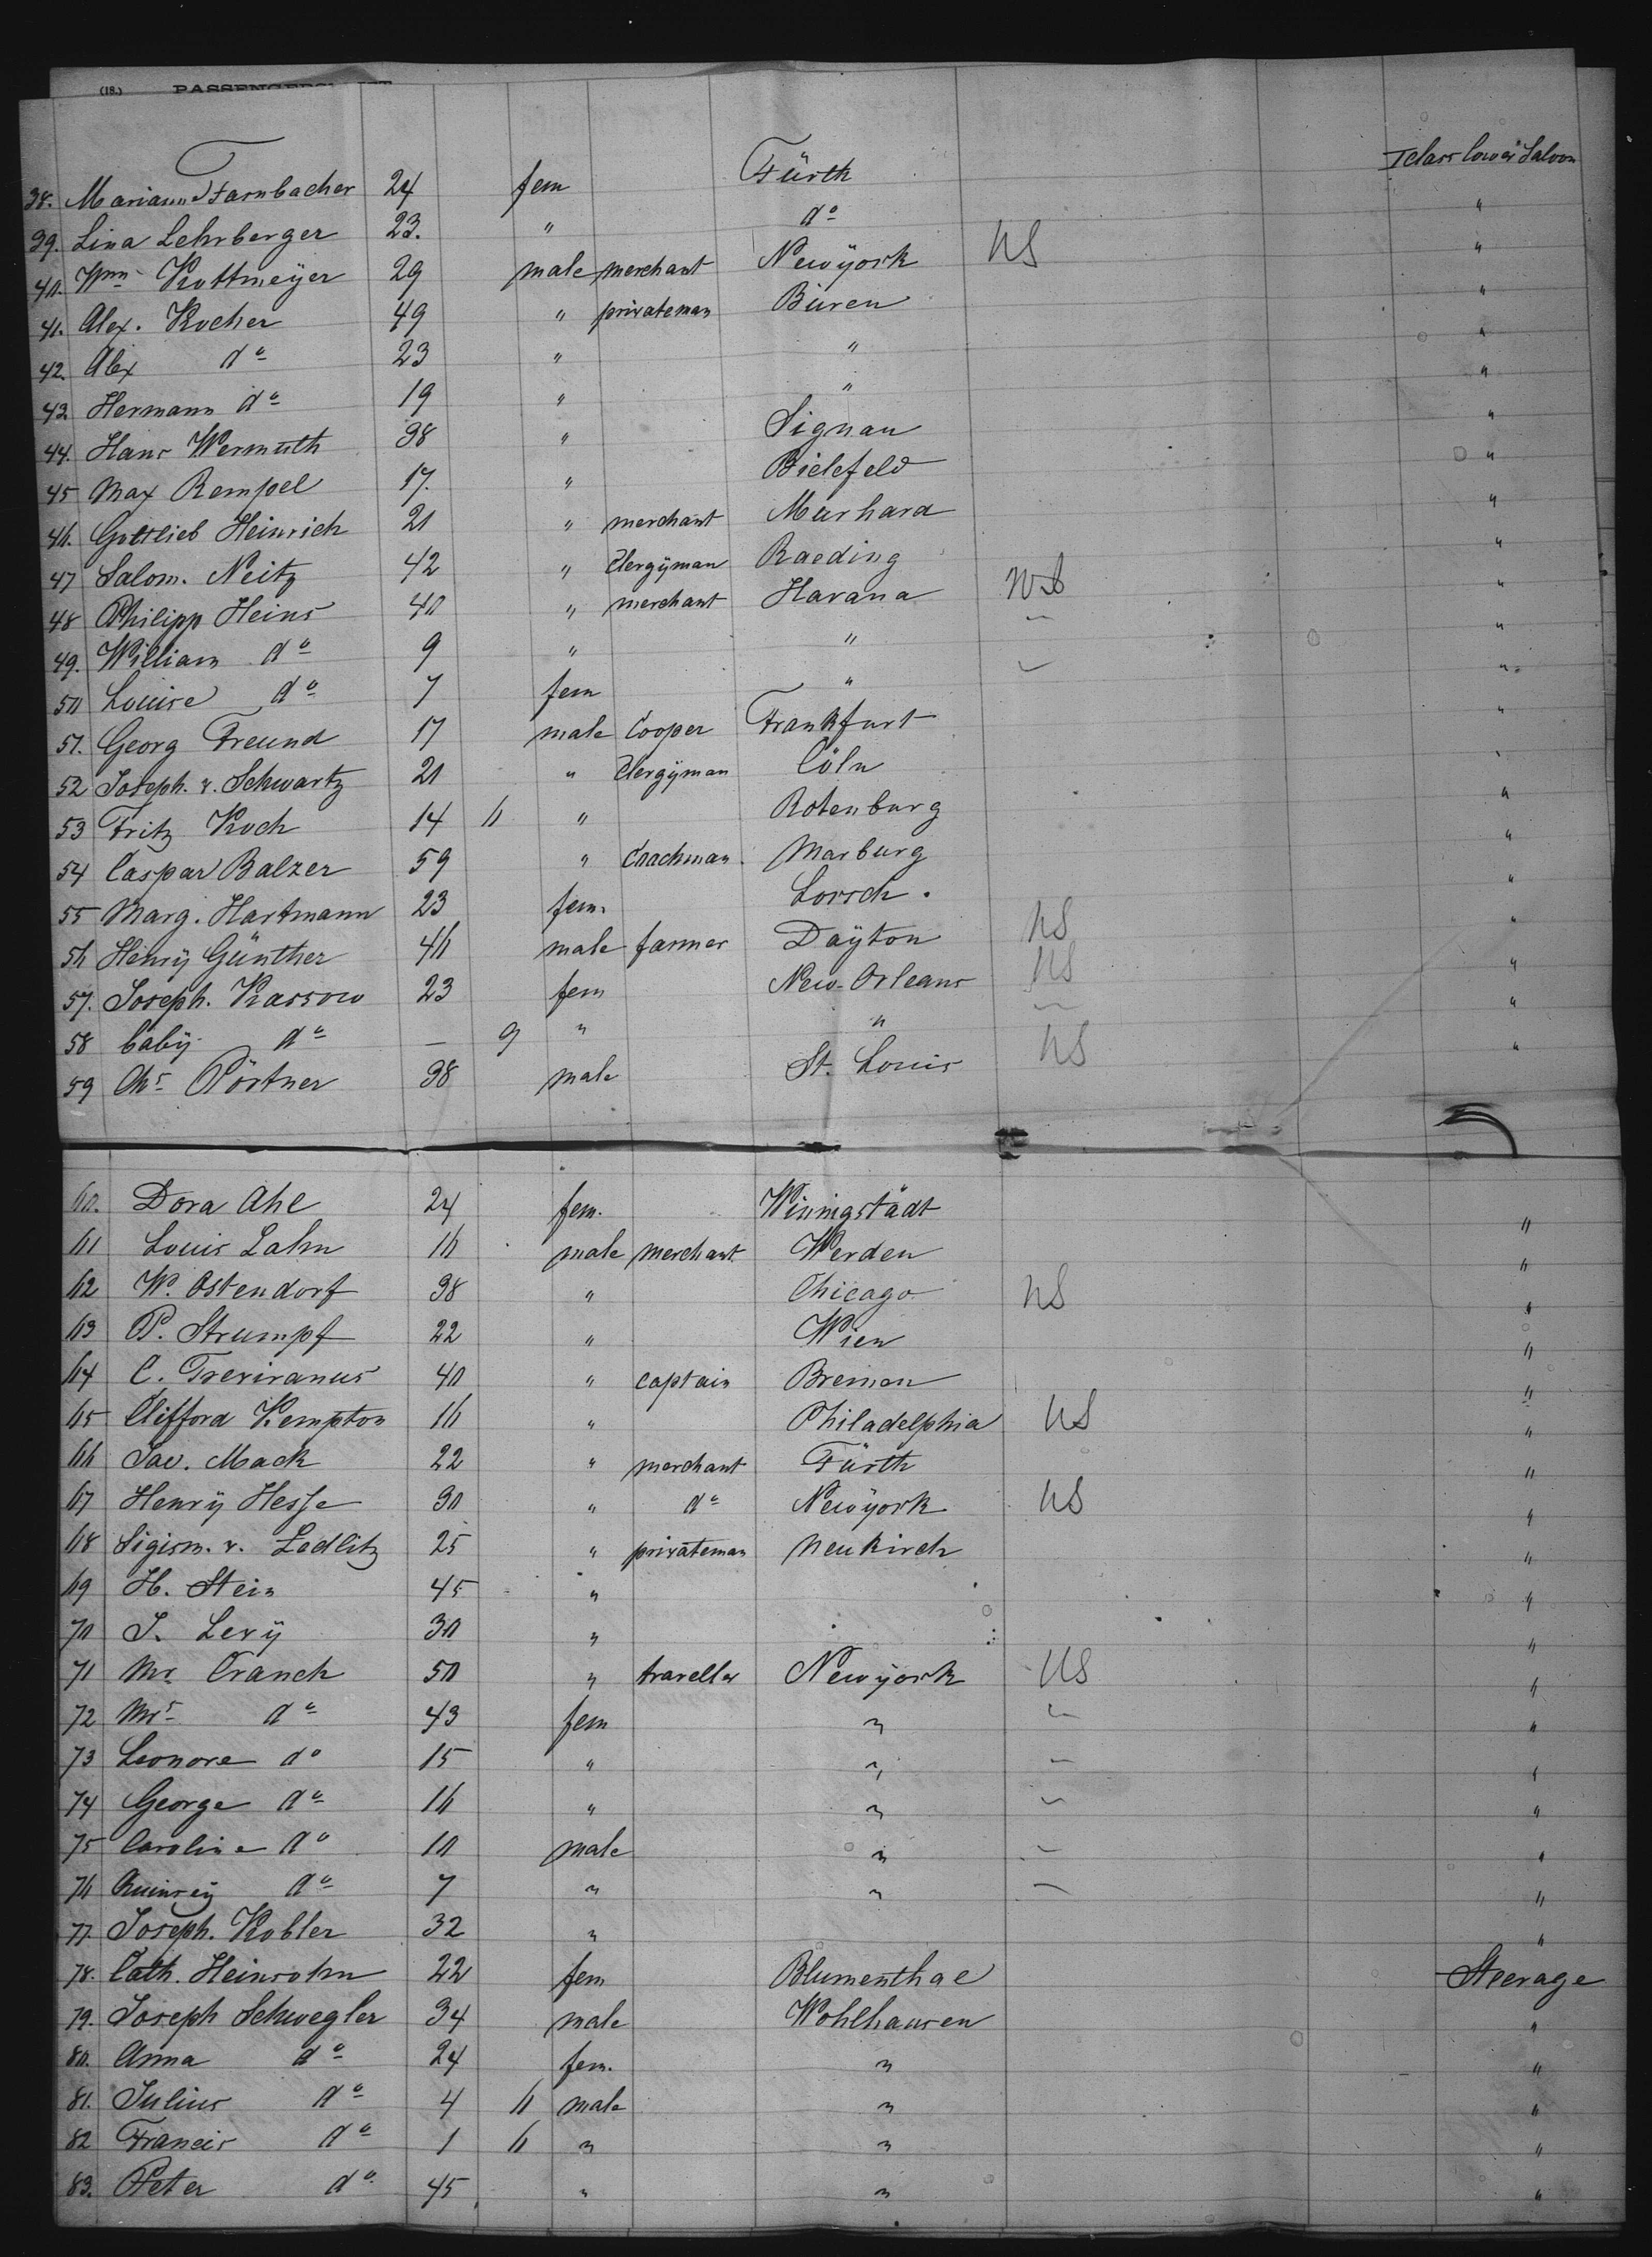 (18.) PASSENGERS' LIST
I class lower Saloon
38. Marianne Farnbacher 24 fem Fürth
39. Lina Lehrberger 23. " do "
40. Wm Kottmeÿer 29 male merchant Newÿork US "
41. Alex. Kocher 49 " privateman Büren "
42. Alex do 23 " " "
43 Hermann do 19 " " "
44. Hans Wermuth 38 " Signau "
45 Max Rempel 17. " Bielefeld "
46. Gottlieb Heinrich 21 " merchant Murhard "
47 Salom. Neitz 42 " Clergÿman Raeding "
48 Philipp Heins 40 " merchant Havana "
49. William do 9 " " "
50 Louise do 7 fem " "
51. Georg Freund 17 male Cooper Frankfurt "
52 Joseph. v. Schwartz 21 " Clergÿman Cöln "
53 Fritz Koch 14 6 " Rotenburg "
54 Caspar Balzer 59 " Coachman Marburg "
55 Marg. Hartmann 23 fem. Lorsch. "
56 Henrÿ Günther 46 male farmer Daÿton US "
57. Joseph. Kassow 23 fem New-Orleans US "
58 babÿ do — 9 " " "
59 Chs Pörtner 38 male St. Louis US "
60. Dora Ahl 24 fem. Winnigstädt "
61 Louis Lahn 16 male merchant Werden "
62 W. Ostendorf 38 " Chicago US "
63 P. Strumpf 22 " Wien "
64 C. Treviranus 40 " captain Bremen "
65 Clifford Kempton 16 " Philadelphia US "
66 Sav. Mack 22 " merchant Fürth "
67 Henrÿ Hesse 30 " do Newÿork US "
68 Sigism. v. Zedlitz 25 " privateman Neukirch "
69 H. Stein 45 " "
70 J. Levÿ 30 " "
71 Mr Cranch 50 " traveller Newÿork US "
72 Mrs do 43 fem " "
73 Leonore do 15 " " "
74 George do 16 " " "
75 Caroline do 10 male " "
76 Quinseÿ do 7 " " "
77. Joseph. Kobler 32 " "
78. Cath. Heinsohn 22 fem Blumenthal Steerage
79. Joseph Schwegler 34 male Wohlhausen "
80. Anna do 24 fem. " "
81. Julius do 4 6 male " "
82 Francis do 1 6 " " "
83. Peter do 45 " " "